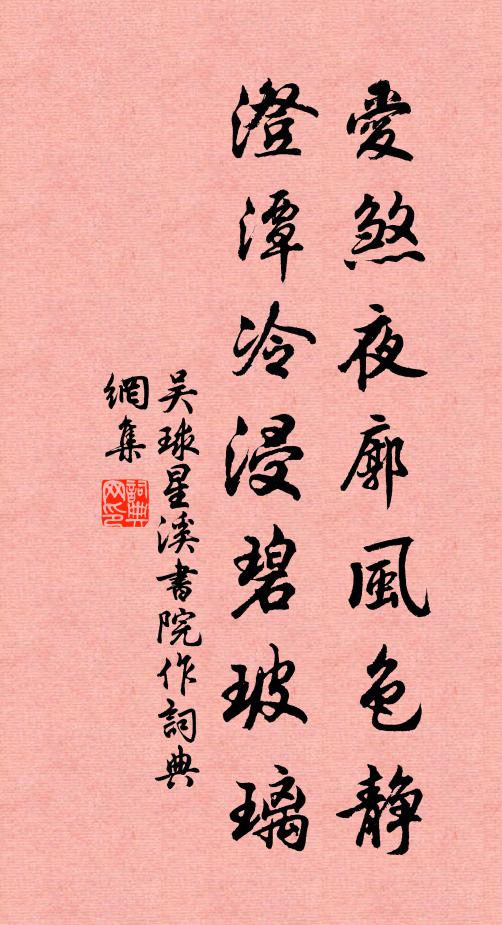 愛煞夜廓風色静
澄潭冷浸碧玻璃
吴球星溪書院作詞典
網集
詞典
网印